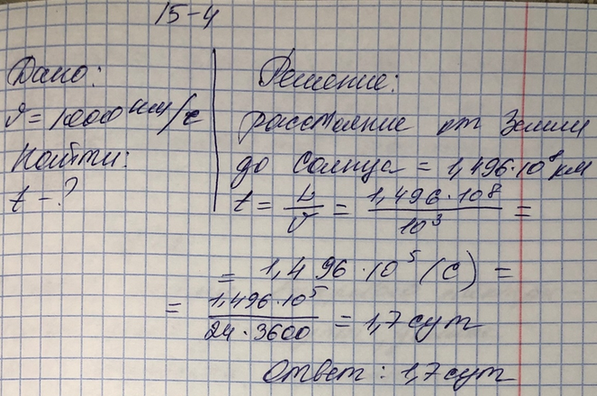 15-4
Дано:
υ = 1000 км/с
Найти:
t - ?
Решение:
расстояние от Земли
до Солнца = 1,496·10⁸ км
t = L/υ = 1,496·10⁸/10³ =
= 1,496·10⁵ (с) =
= 1,496·10⁵/24·3600 = 1,7 сут
Ответ: 1,7 сут